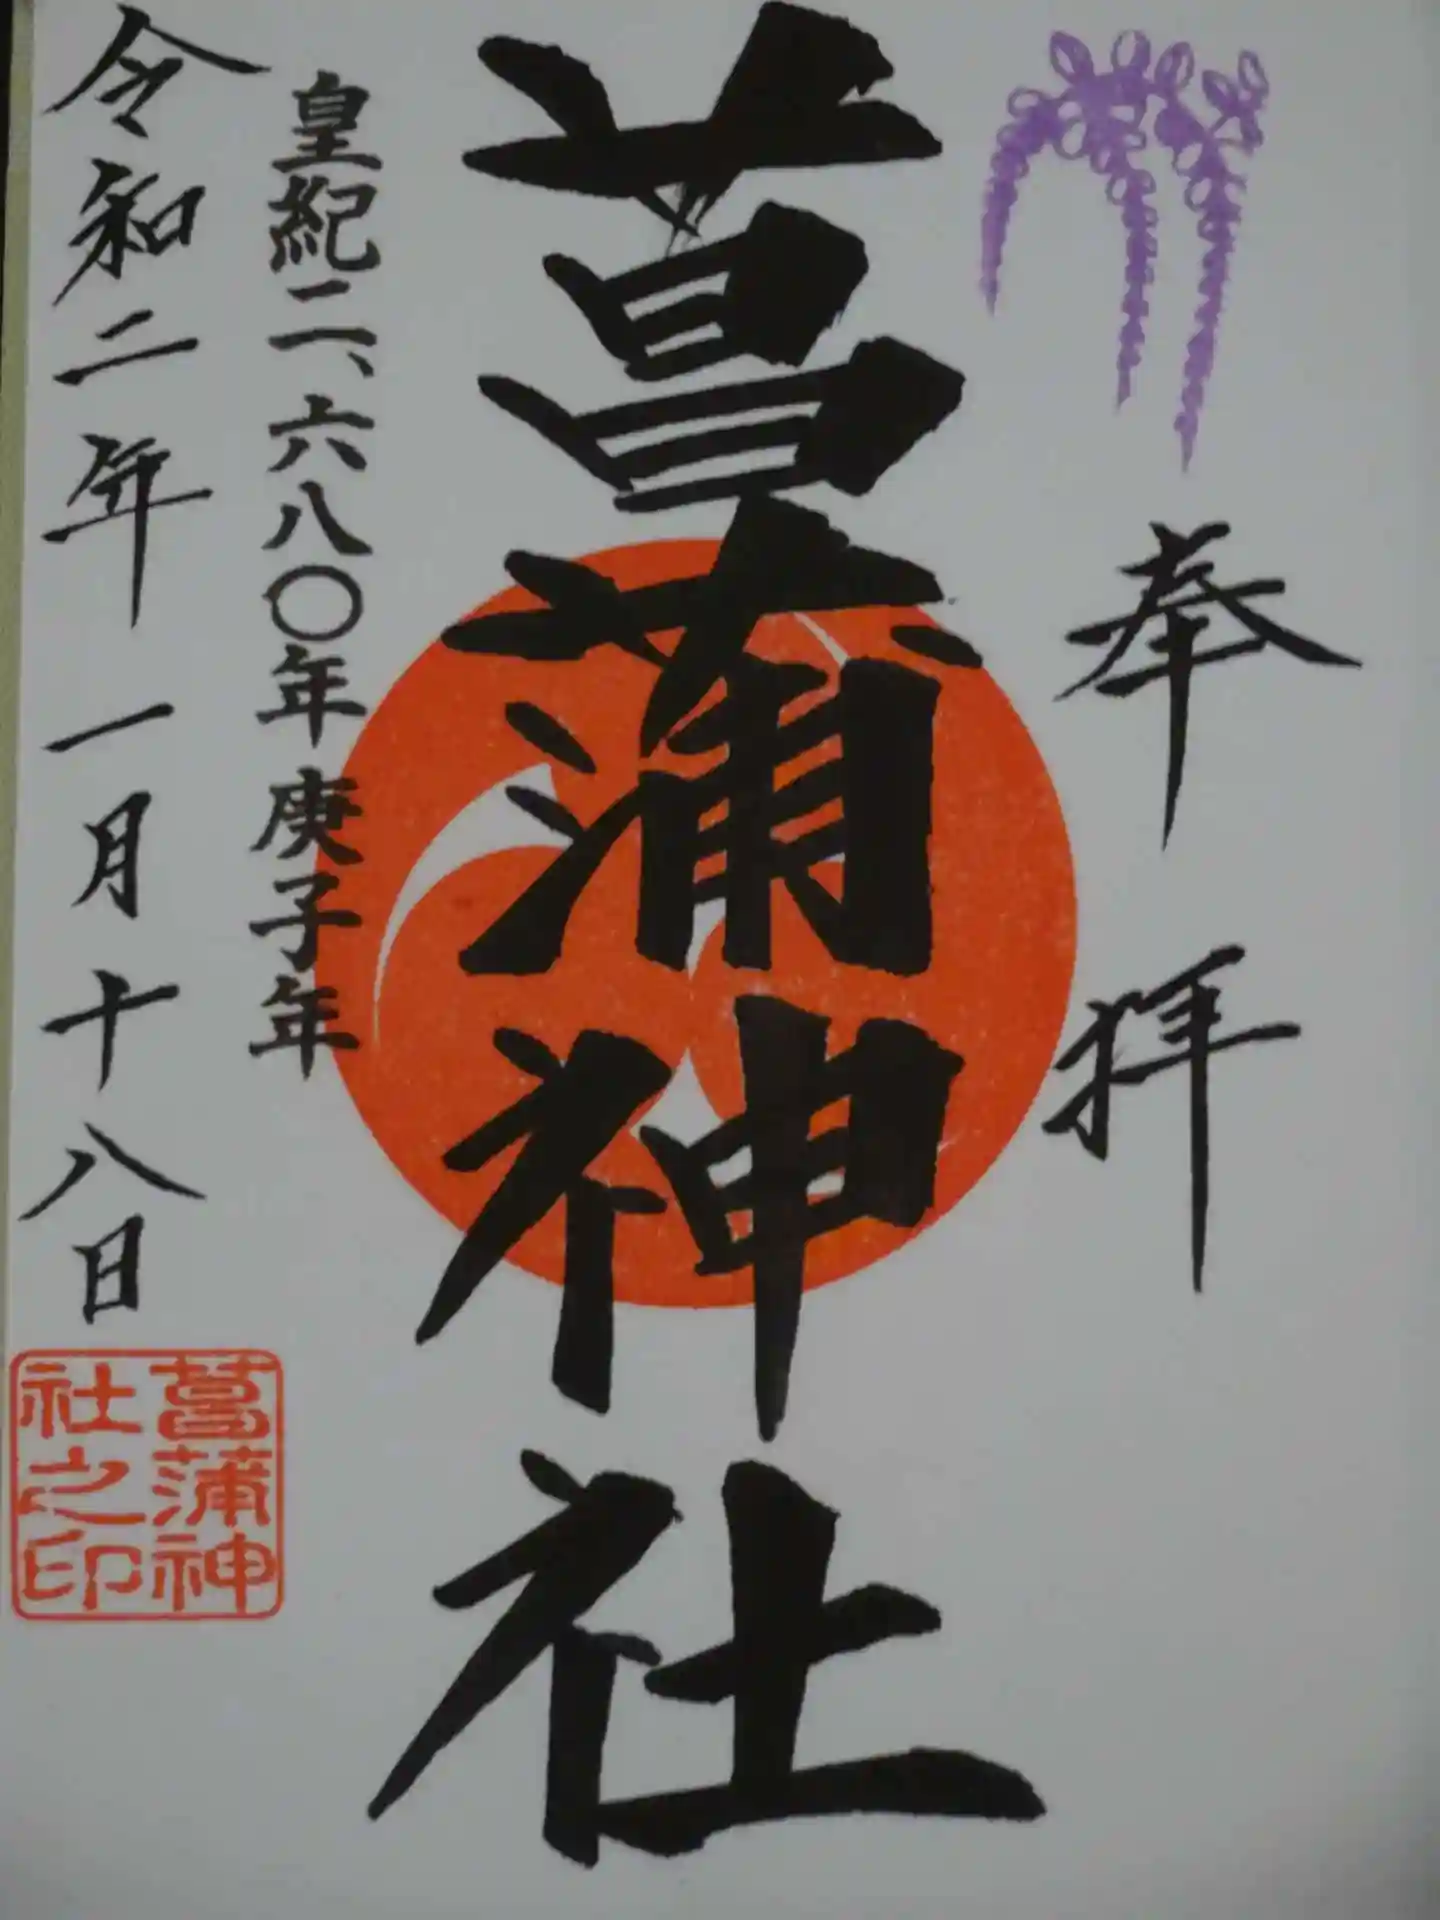 奉拝
菖蒲神社
皇紀二、六八〇年 庚子年
令和二年 一月十八日
菖蒲神
社之印